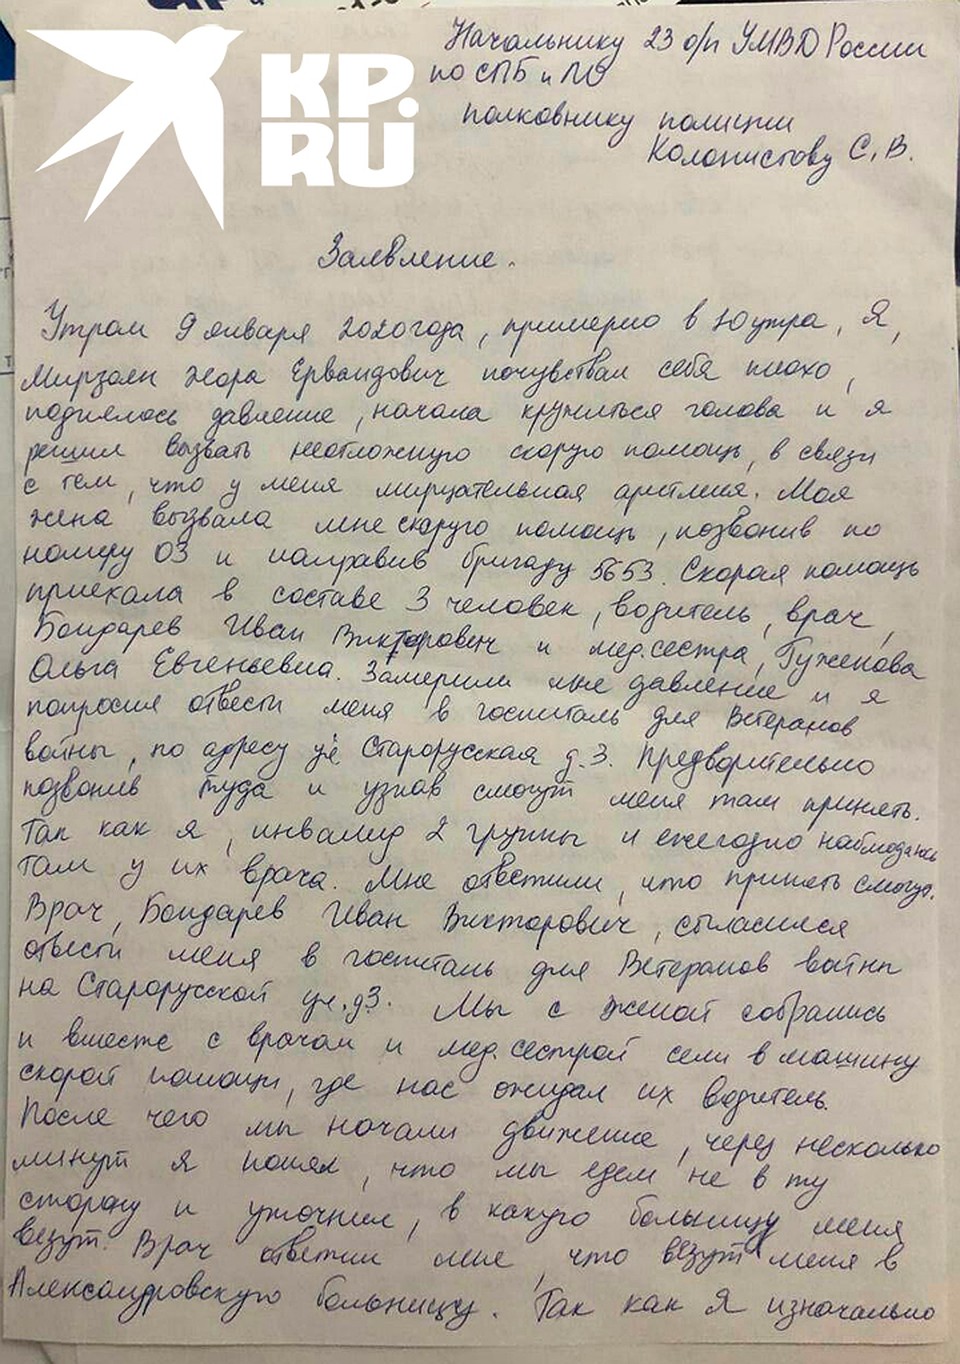 KP.
RU
Начальнику 23 о/п УМВД России
по СПБ и ЛО
полковнику полиции
Колонистову С. В.
Заявление.
Утром 9 января 2020 года, примерно в 10 утра, Я,
Мирзоян Жора Ервандович почувствал себя плохо,
поднялось давление, начала кружиться голова и я
решил вызвать неотложную скорую помощь, в связи
с тем, что у меня мирцательная аритмия. Моя
жена вызвала мне скорую помощь, позвонив по
номеру 03 и направив бригаду 5653. Скорая помощь
приехала в составе 3 человек, водитель, врач,
Бондарев Иван Викторович и мед.сестра, Гуженова
Ольга Евгеньевна. Замерили мне давление и я
попросил отвести меня в госпиталь для Ветеранов
войны, по адресу ул Старорусская д.3. Предворительно
позвонив туда и узнав смогут меня там принять.
Так как я, инвалид 2 группы и ежегодно наблюдаюсь
там у их врача. Мне ответили, что принять смогут.
Врач, Бондарев Иван Викторович, согласился
отвести меня в госпиталь для Ветеранов войны
на Старорусской ул.д3. Мы с женой собрались
и вместе с врачом и мед.сестрой сели в машину
скорой помощи, где нас ожидал их водитель.
После чего мы начали движение, через несколько
минут я понял, что мы едем не в ту
сторону и уточнил, в какую больницу меня
везут. Врач ответил мне, что везут меня в
Александровскую больницу. Так как Я изначально